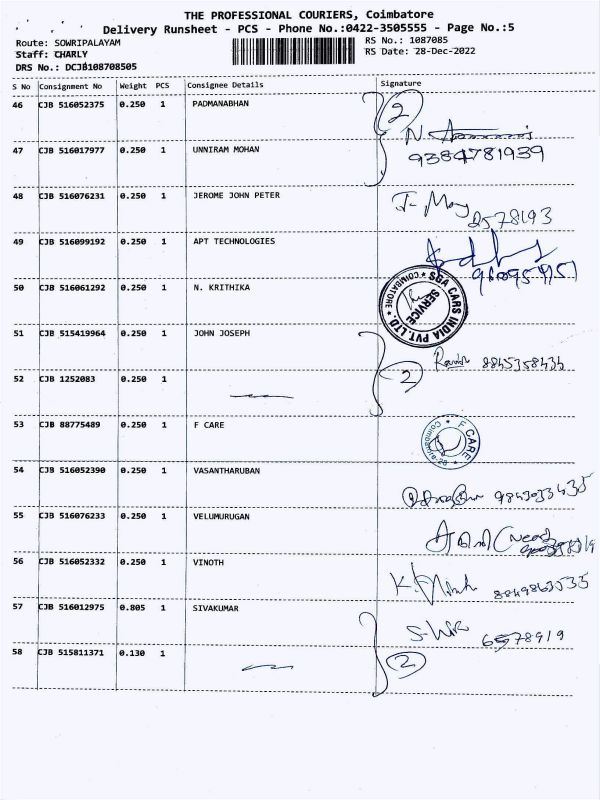 THE PROFESSIONAL COURIERS, Coimbatore
Delivery Runsheet - PCS - Phone No.:0422-3505555 - Page No.:5
Route: SOWRIPALAYAM
RS No.: 1087085
Staff: CHARLY
RS Date: 28-Dec-2022
DRS No.: DCJB108708505
S No Consignment No Weight PCS Consignee Details Signature
46 CJB 516052375 0.250 1 PADMANABHAN
2
N.
47 CJB 516017977 0.250 1 UNNIRAM MOHAN 9384781939
48 CJB 516076231 0.250 1 JEROME JOHN PETER
49 CJB 516099192 0.250 1 APT TECHNOLOGIES
50 CJB 516061292 0.250 1 N. KRITHIKA
SGA CARS INDIA PVT. LTD. * COIMBATORE *
SERVICE
51 CJB 515419964 0.250 1 JOHN JOSEPH
52 CJB 1252083 0.250 1
2
53 CJB 88775489 0.250 1 F CARE
F CARE
54 CJB 516052390 0.250 1 VASANTHARUBAN
55 CJB 516076233 0.250 1 VELUMURUGAN
56 CJB 516052332 0.250 1 VINOTH
57 CJB 516012975 0.805 1 SIVAKUMAR
58 CJB 515811371 0.130 1
2